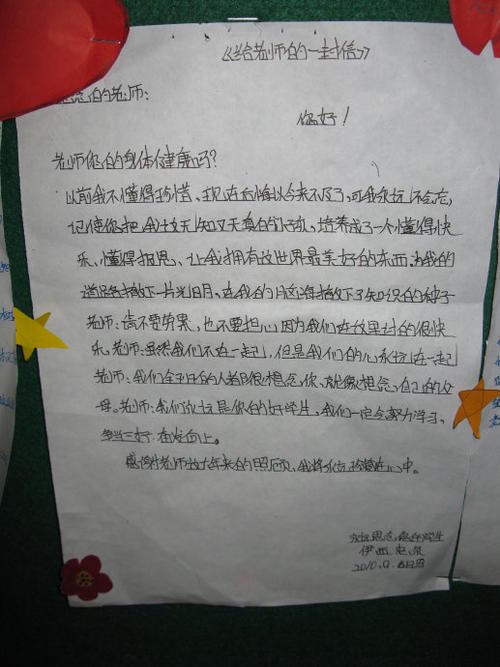 《给老师的一封信》
思念的老师:
你好!
老师你的身体健康吗?
以前我不懂得珍惜、现在后悔以今来不及了,可我永远不会忘,
记使你把我这无知又天真的孩子, 培养成了一个懂得快
乐、懂得报恩、让我拥有这世界最美好的东西.为我的
道路撒下一片光明,在我的脑海播下了知识的种子
老师:请不要劳累,也不要担心因为我们在这里过的很快
乐.老师:虽然我们不在一起,但是我们的心永远在一起
老师:我们全班的人都很想念你、就像想念,自己的父
母.老师:我们永远是你的好学生、我们一定会努力学习、
天天向上。
感谢老师这六年来的照顾、我将永远珍藏在心中。
永远思念您的学生
2010.9.